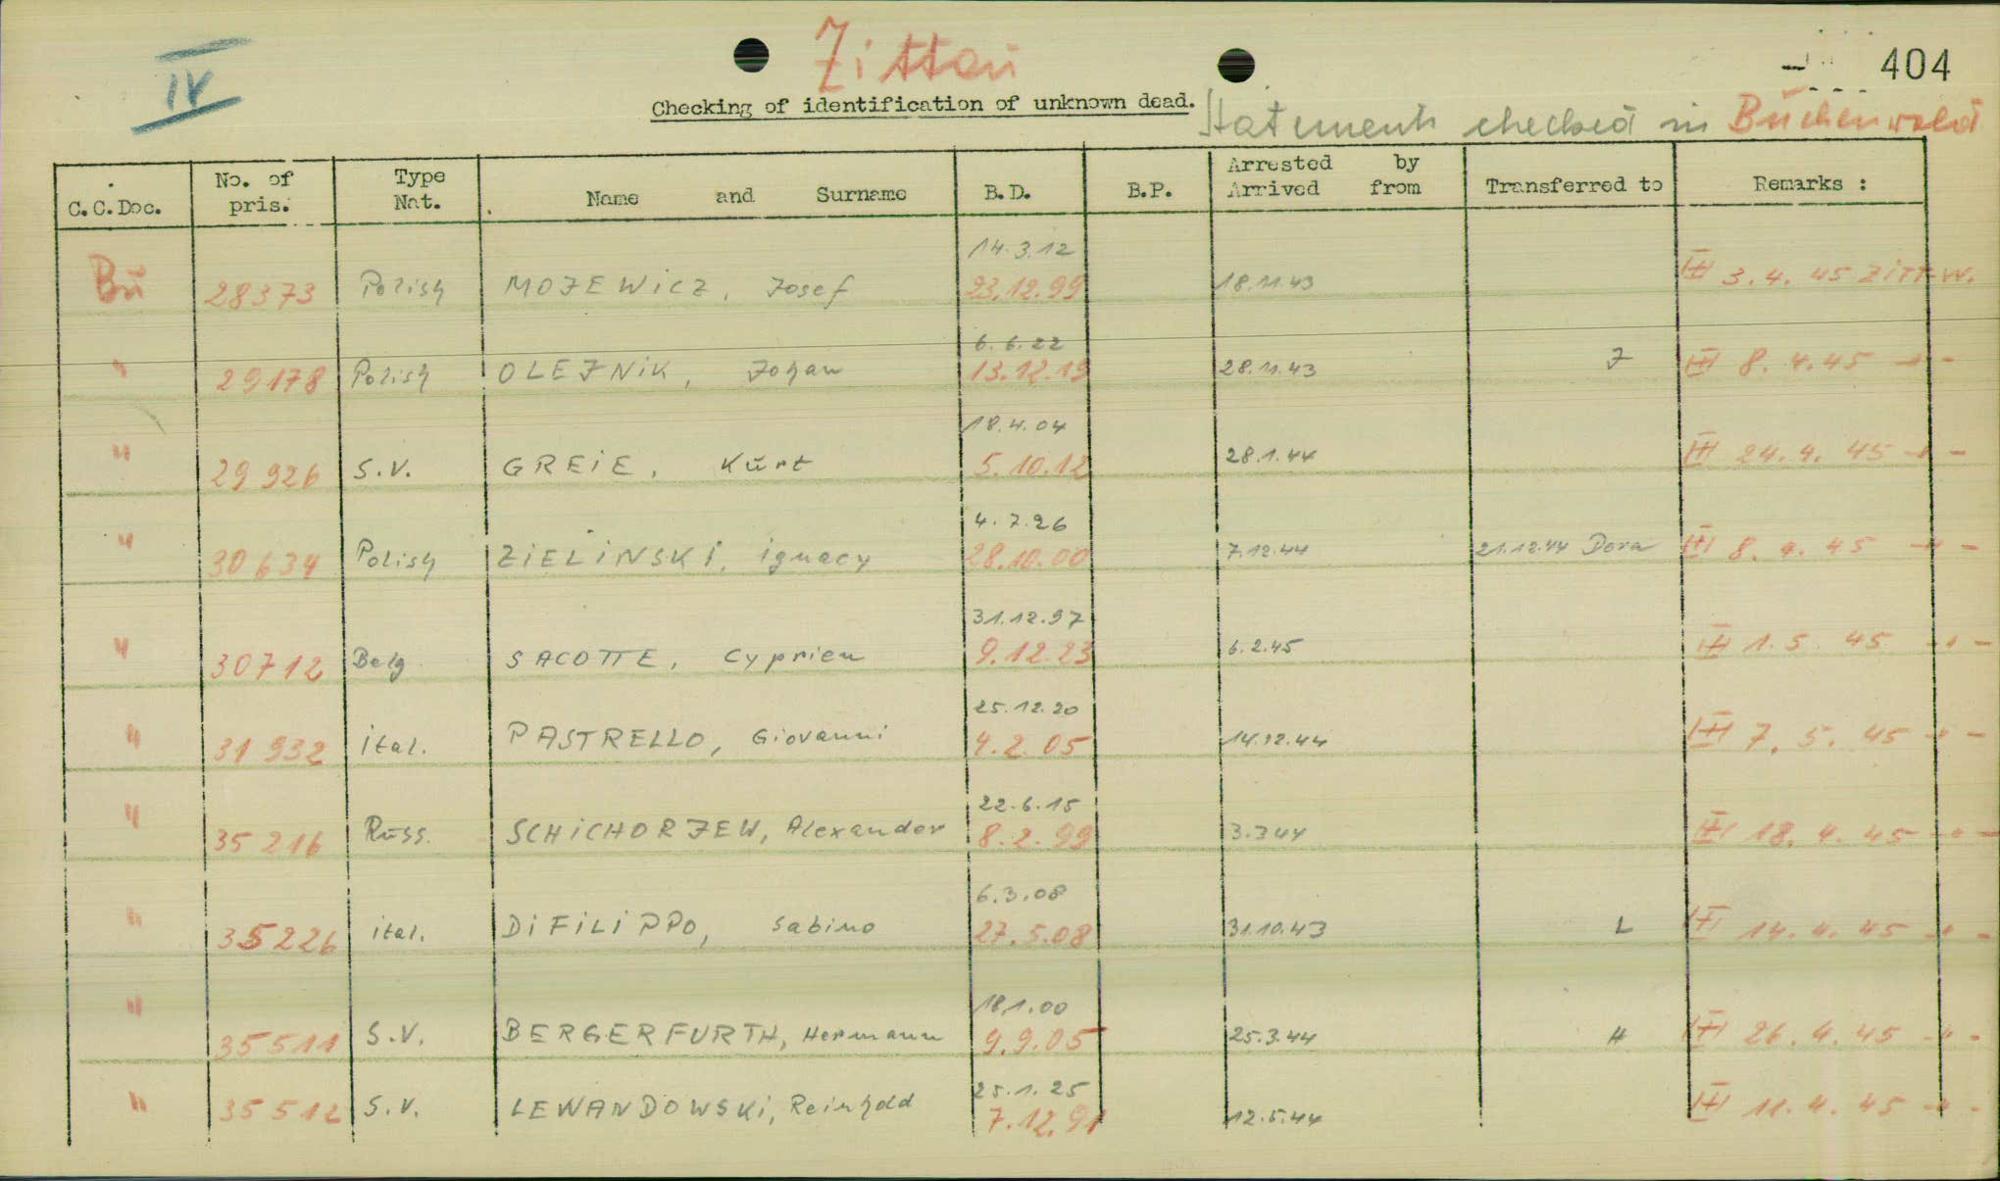 IV
Zittau
404
Checking of identification of unknown dead.
Statement checked in Buchenwald
C.C.Doc. No. of pris. Type Nat. Name and Surname B.D. B.P. Arrested by Arrived from Transferred to Remarks :
14.3.12
Bu 28373 Polish MOJEWICZ, Josef 23.12.99 18.11.43 3.4.45 Zitt-W.
6.6.22
" 29178 Polish OLEJNIK, Johan 13.12.19 28.11.43 J 8.4.45 -"-
18.4.04
" 29926 S.V. GREIE, Kurt 5.10.12 28.1.44 24.4.45 -"-
4.7.26
" 30634 Polish ZIELINSKI, ignacy 28.10.00 7.12.44 21.12.44 Dora 8.4.45 -"-
31.12.97
" 30712 Belg SACOTTE, Cyprien 9.12.23 6.2.45 1.5.45 -"-
25.12.20
" 31932 ital. PASTRELLO, Giovanni 4.2.05 14.12.44 7.5.45 -"-
22.6.15
" 35216 Russ. SCHICHORJEW, Alexander 8.2.99 3.7.44 18.4.45 -"-
6.3.08
" 35226 ital. DIFILIPPO, Sabino 27.5.08 31.10.43 L 14.4.45 -"-
18.1.00
" 35511 S.V. BERGERFURTH, Hermann 9.9.05 25.3.44 H 26.4.45 -"-
25.1.25
" 35512 S.V. LEWANDOWSKI, Reinhold 7.12.91 12.5.44 11.4.45 -"-